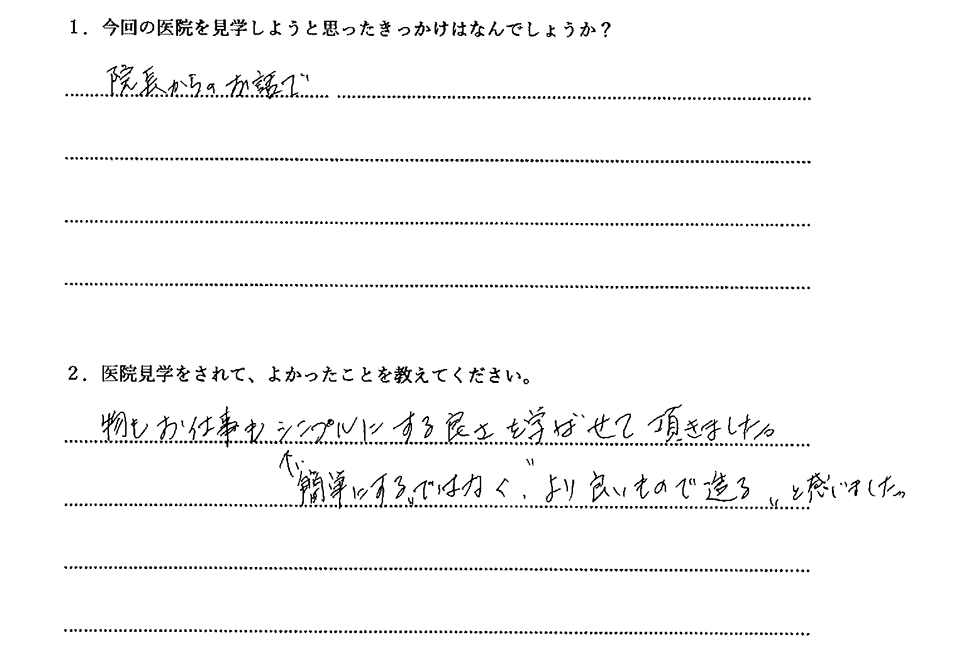 1．今回の医院を見学しようと思ったきっかけはなんでしょうか？
院長からのお話で
2．医院見学をされて、よかったことを教えてください。
物もお仕事もシンプルにする良さを学ばせて頂きました。
↑〝簡単にする〟ではなく、〝より良いもので造る〟と感じました。